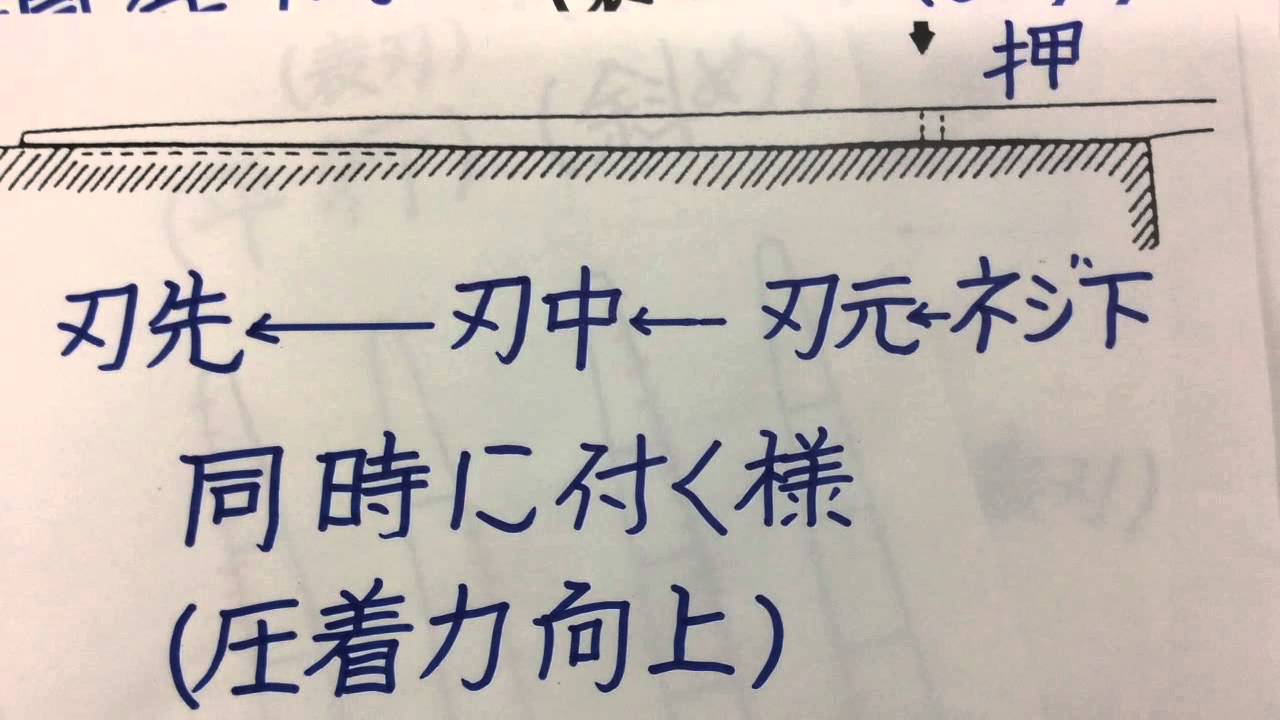 押
刃先←刃中←刃元←ネジ下
同時に付く様
(圧着力向上)